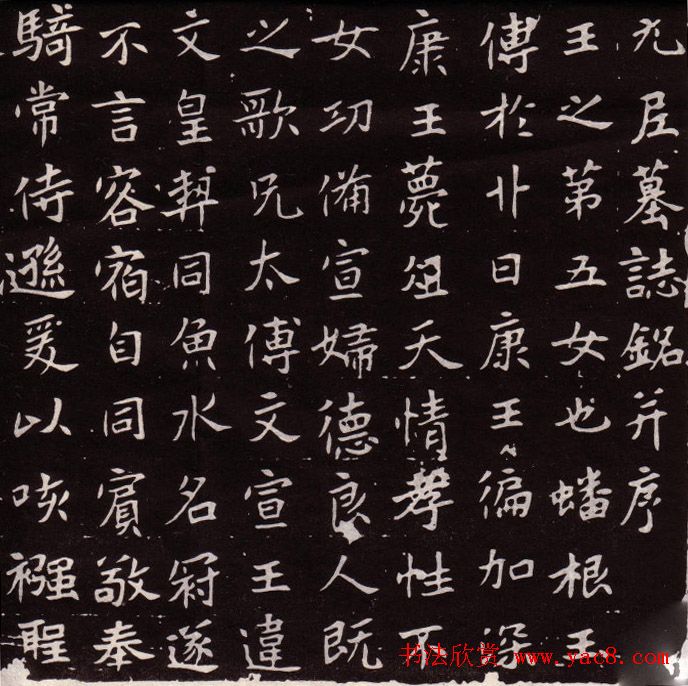 元尼墓誌銘并序
王之第五女也蟠根玉
傅於廿日康王〻徧加深
康王薨俎天情孝性不
女功備宣婦德良人既
之歌兄太傅文宣王違
文皇契同魚水名冠遂
不言容宿自同賓敬奉
騎常侍遜爰以咳襁聖
书法欣赏 www.yac8.com